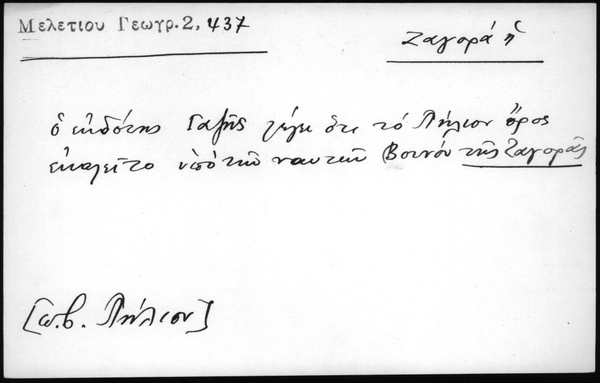 Μελετίου Γεωγρ. 2, 437
Ζαγορά ἡ
ὁ ἐκδότης Γαζῆς λέγει ὅτι τό Πήλιον ὄρος
ἐκαλεῖτο ὑπό τῶν ναυτῶν Βουνόν τῆς Ζαγορᾶς
[ω.β. Πήλιον]